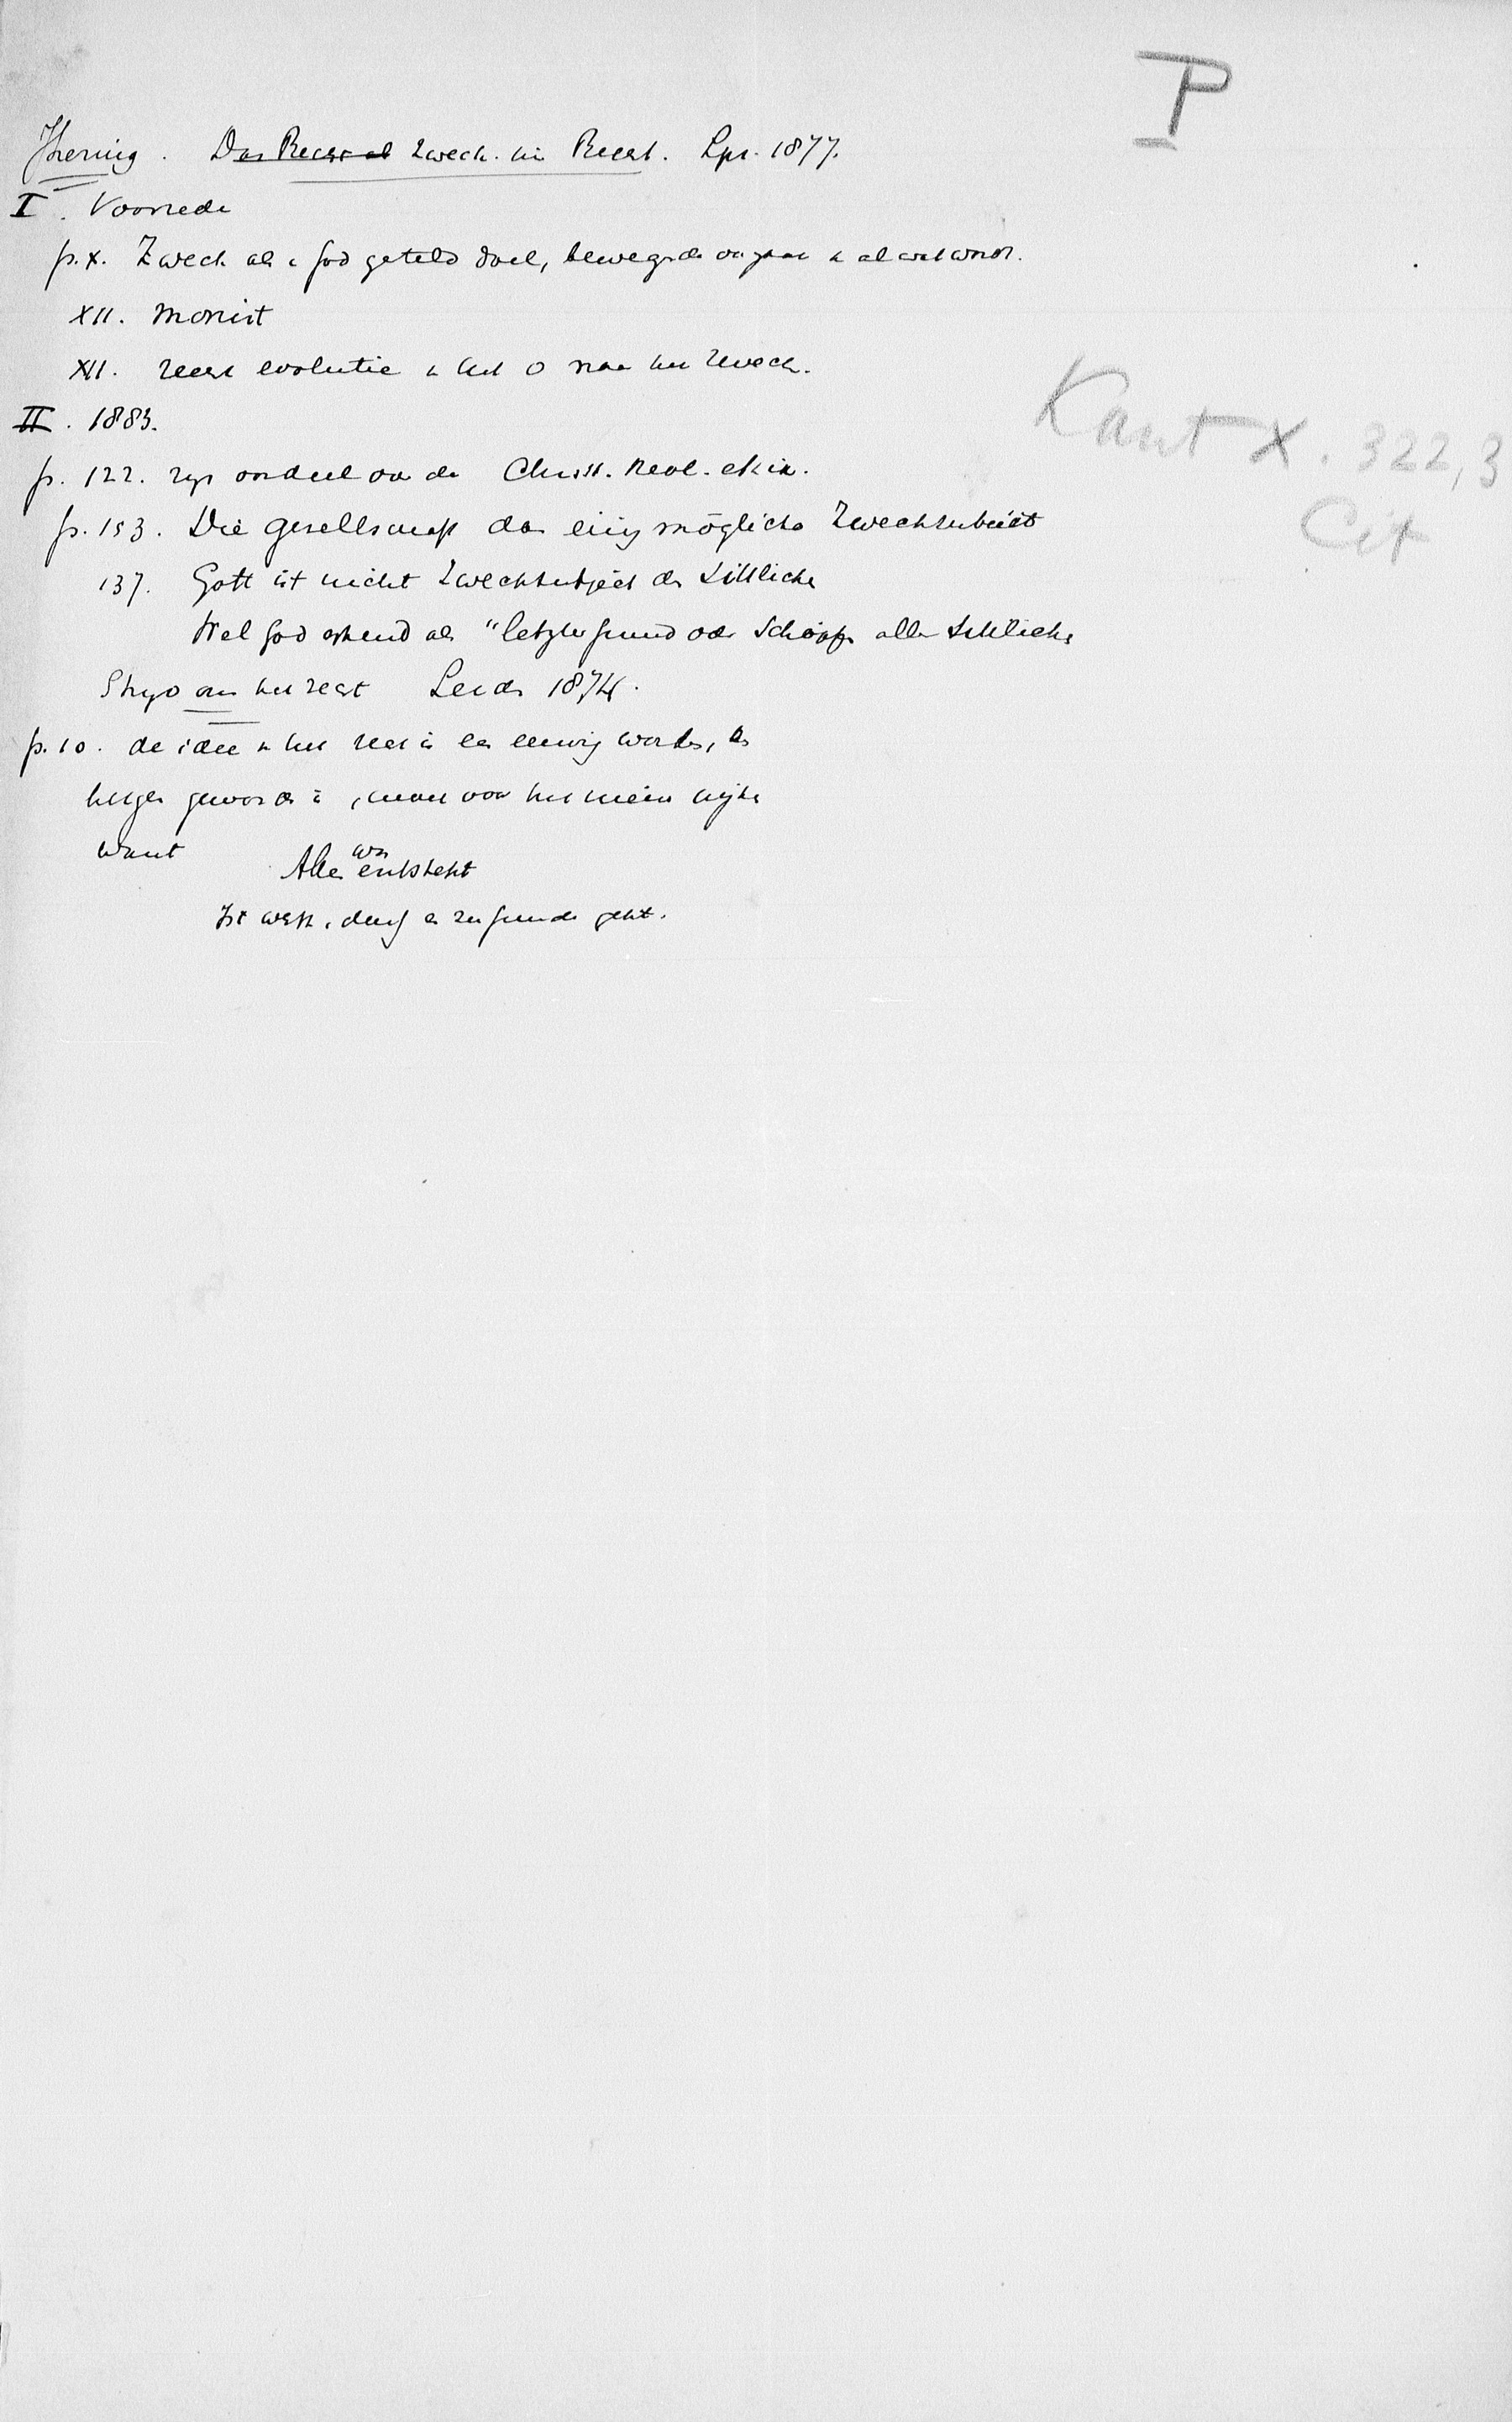 P
Jhering. Das Recht al Zweck im Recht. Lpz. 1877.
I. Voorrede
p. X. Zweck als God gesteld doel, bewegende al wat wordt.
XII. Monist
XII. recht evolutie het 0 naar het Zweck.
II. 1883.
Kant X. 322,3
Cit
p. 122. zijn oordeel over de Christ. Theol. ethiek.
p. 153. Die Gesellschaft das einzig mögliche Zwecksubject
137. Gott ist nicht Zwecksubject des Sittliche
Wel God erkend als "letzter Grund oder Schöpfer alles Sittliche
Strijd om het recht Leiden 1874.
p. 10. de idee het recht is een eeuwig worden,
geworden is, moet voor het nieuw wijken
want
Alles was entsteht
Ist wert, dass es zu Grunde geht.